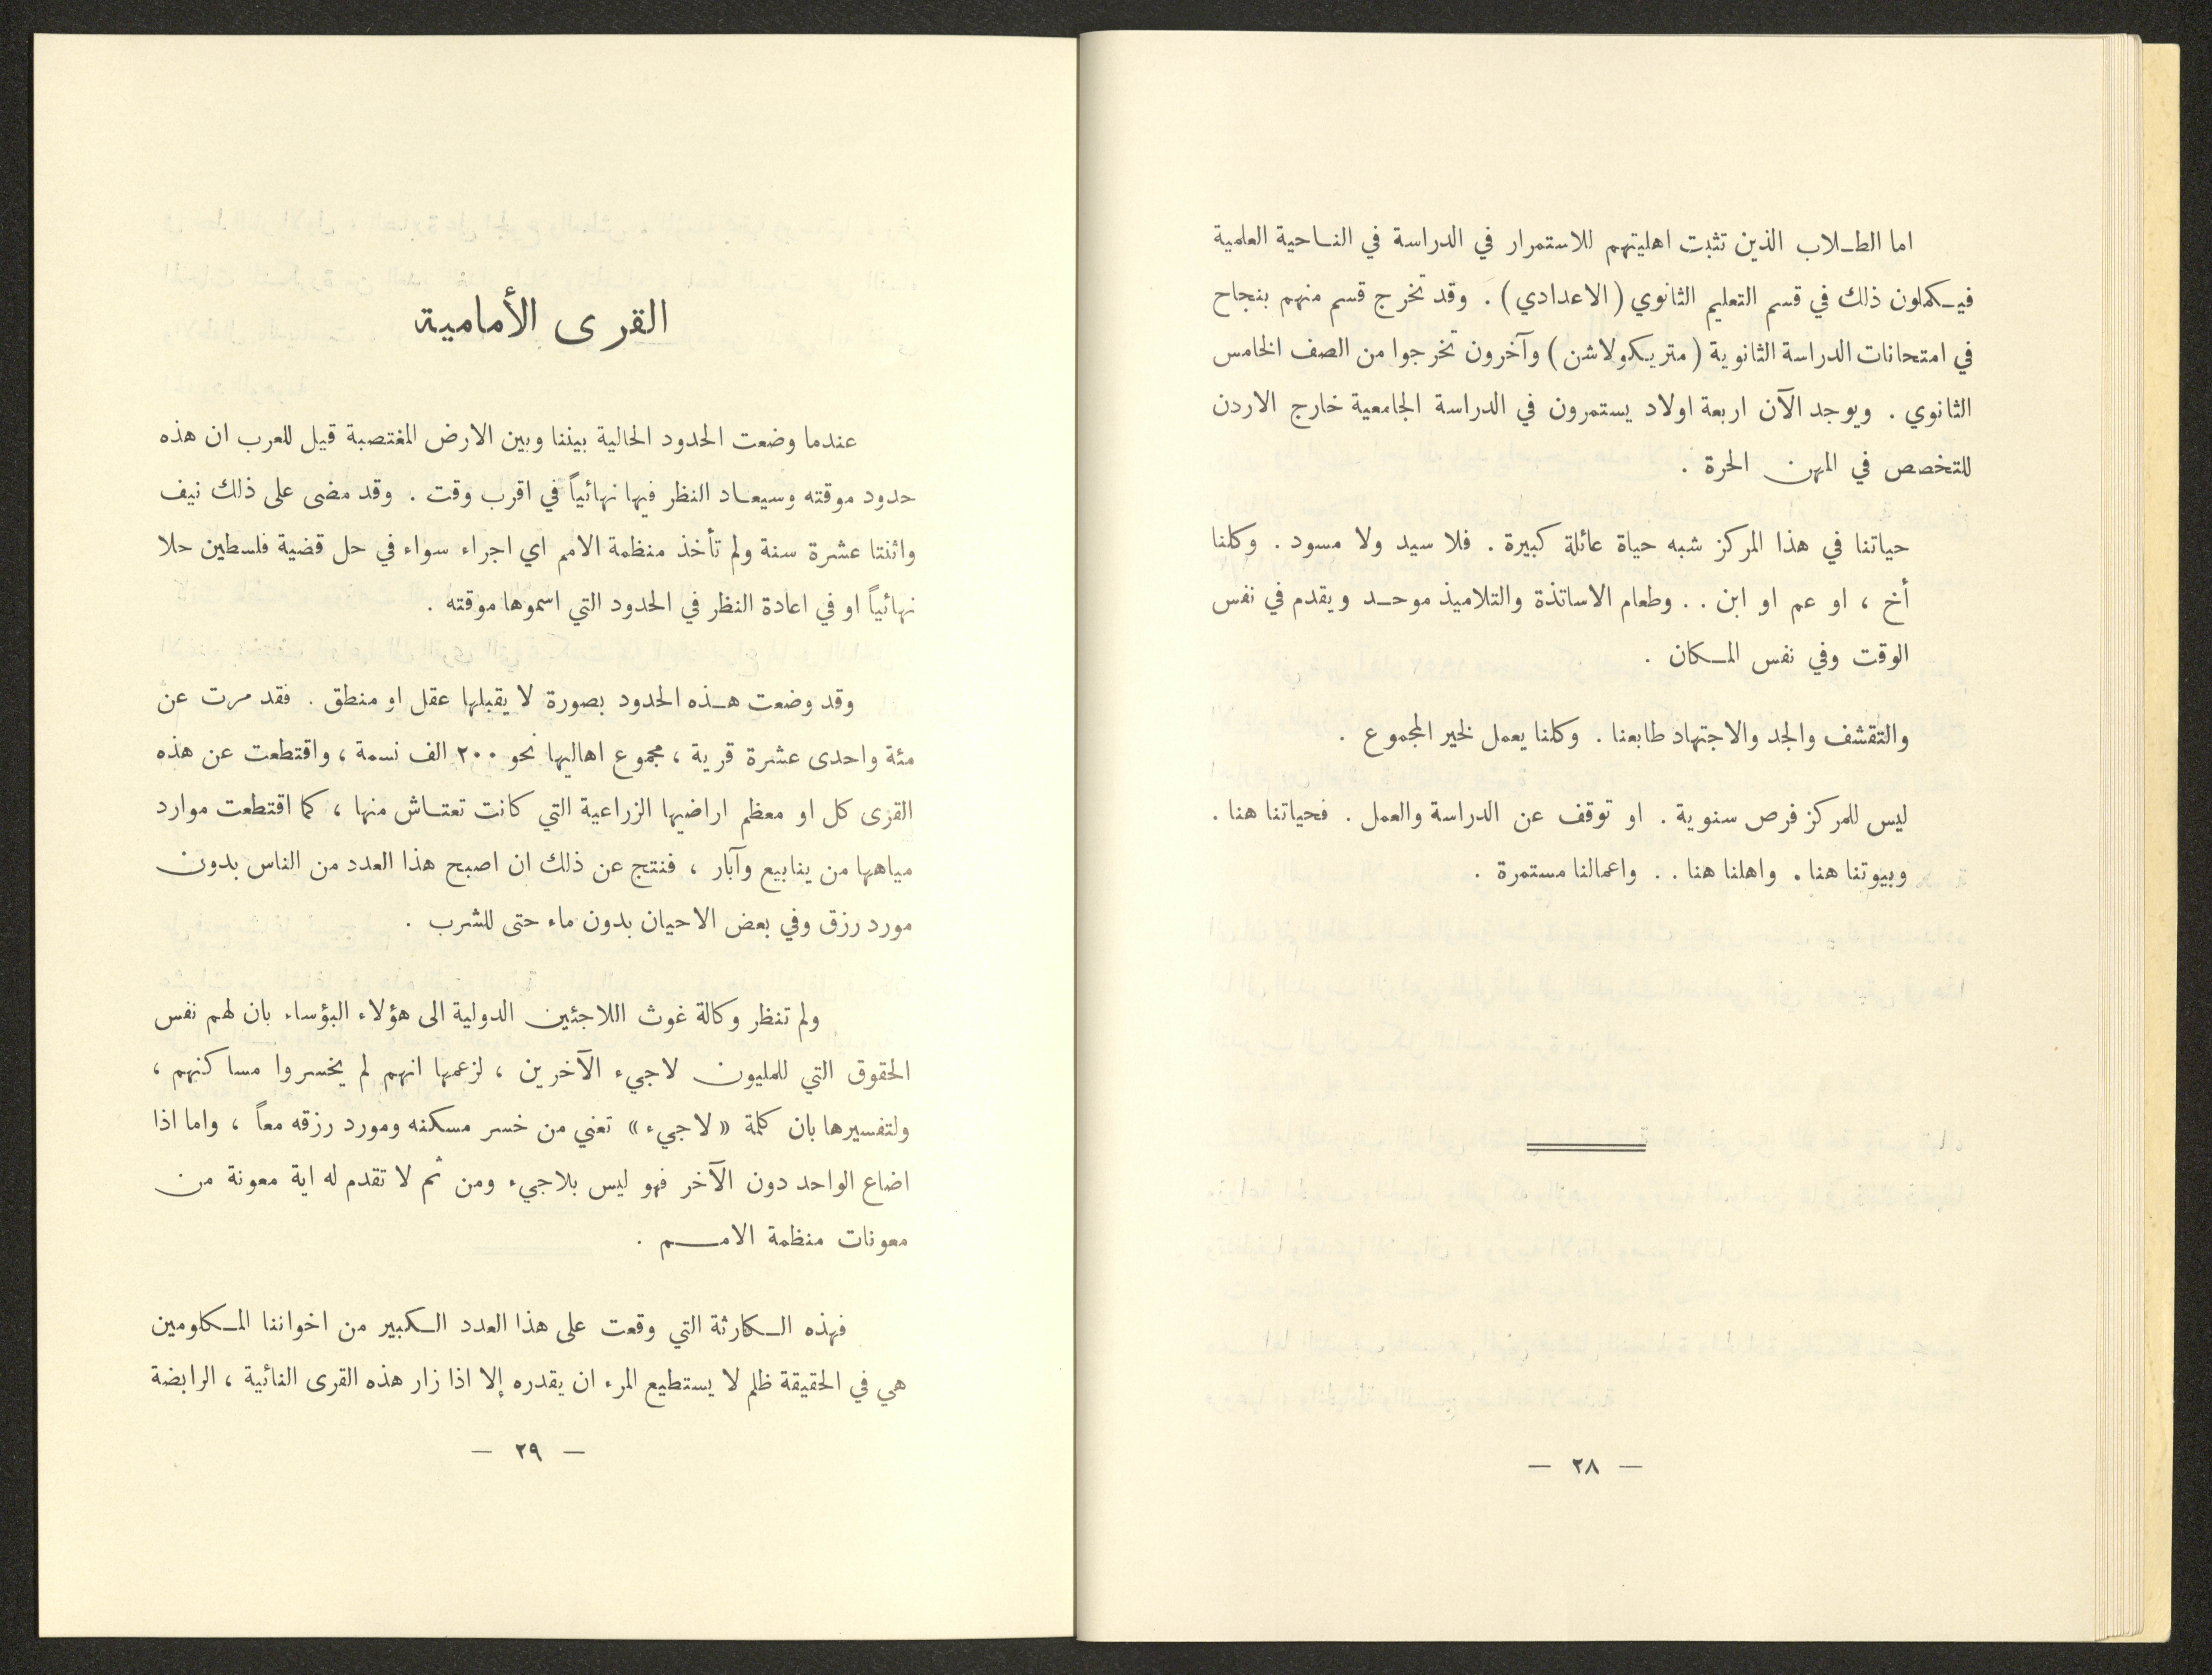 اما الطلاب الذين تثبت اهليتهم للاستمرار في الدراسة في الناحية العلمية
فيكملون ذلك في قسم التعليم الثانوي (الاعدادي) . وقد تخرج قسم منهم بنجاح
في امتحانات الدراسة الثانوية (متريكولاشن) وآخرون تخرجوا من الصف الخامس
الثانوي . ويوجد الآن اربعة اولاد يستمرون في الدراسة الجامعية خارج الاردن
للتخصص في المهن الحرة .
حياتنا في هذا المركز شبه حياة عائلة كبيرة . فلا سيد ولا مسود . وكلنا
أخ ، او عم او ابن . . وطعام الاساتذة والتلاميذ موحد ويقدم في نفس
الوقت وفي نفس المكان .
والتقشف والجد والاجتهاد طابعنا . وكلنا يعمل لخير المجموع .
ليس للمركز فرص سنوية . او توقف عن الدراسة والعمل . فحياتنا هنا .
وبيوتنا هنا . واهلنا هنا . . واعمالنا مستمرة .
— ٢٨ —
القرى الأمامية
عندما وضعت الحدود الحالية بيننا وبين الارض المغتصبة قيل للعرب ان هذه
حدود موقته وسيعاد النظر فيها نهائياً في اقرب وقت . وقد مضى على ذلك نيف
واثنتا عشرة سنة ولم تأخذ منظمة الامم اي اجراء سواء في حل قضية فلسطين حلا
نهائياً او في اعادة النظر في الحدود التي اسموها موقته .
وقد وضعت هذه الحدود بصورة لا يقبلها عقل او منطق . فقد مرت عن
مئة واحدى عشرة قرية ، مجموع اهاليها نحو ٢٠٠ الف نسمة ، واقتطعت عن هذه
القرى كل او معظم اراضيها الزراعية التي كانت تعتاش منها ، كما اقتطعت موارد
مياهها من ينابيع وآبار ، فنتج عن ذلك ان اصبح هذا العدد من الناس بدون
مورد رزق وفي بعض الاحيان بدون ماء حتى للشرب .
ولم تنظر وكالة غوث اللاجئين الدولية الى هؤلاء البؤساء بان لهم نفس
الحقوق التي للمليون لاجيء الآخرين ، لزعمها انهم لم يخسروا مساكنهم ،
ولتفسيرها بان كلمة «لاجيء» تعني من خسر مسكنه ومورد رزقه معاً ، واما اذا
اضاع الواحد دون الآخر فهو ليس بلاجيء ومن ثم لا تقدم له اية معونة من
معونات منظمة الامم .
فهذه الكارثة التي وقعت على هذا العدد الكبير من اخواننا المكلومين
هي في الحقيقة ظلم لا يستطيع المرء ان يقدره إلا اذا زار هذه القرى النائية ، الرابضة
— ٢٩ —